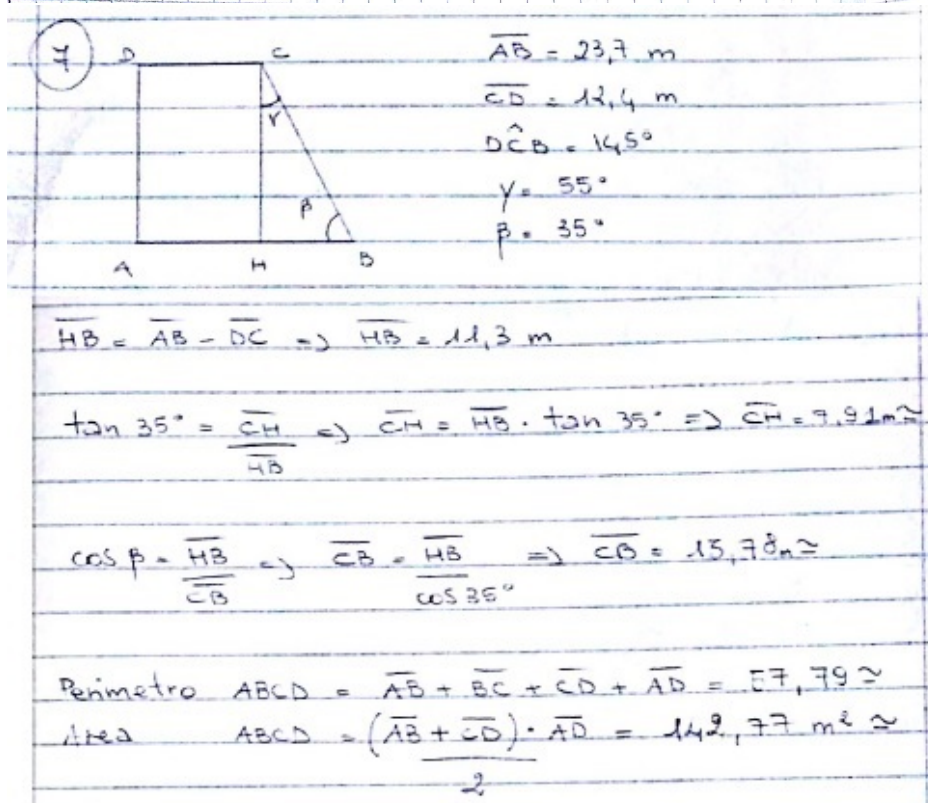 7
D C
γ
β
A H B
AB = 23,7 m
CD = 12,4 m
DĈB = 145°
γ = 55°
β = 35°
HB = AB - DC => HB = 11,3 m
tan 35° = CH / HB => CH = HB · tan 35° => CH = 7,91m ≃
cos β = HB / CB => CB = HB / cos 35° => CB = 13,78m ≃
Perimetro ABCD = AB + BC + CD + AD = 57,79 ≃
Area ABCD = (AB + CD) · AD / 2 = 142,77 m² ≃